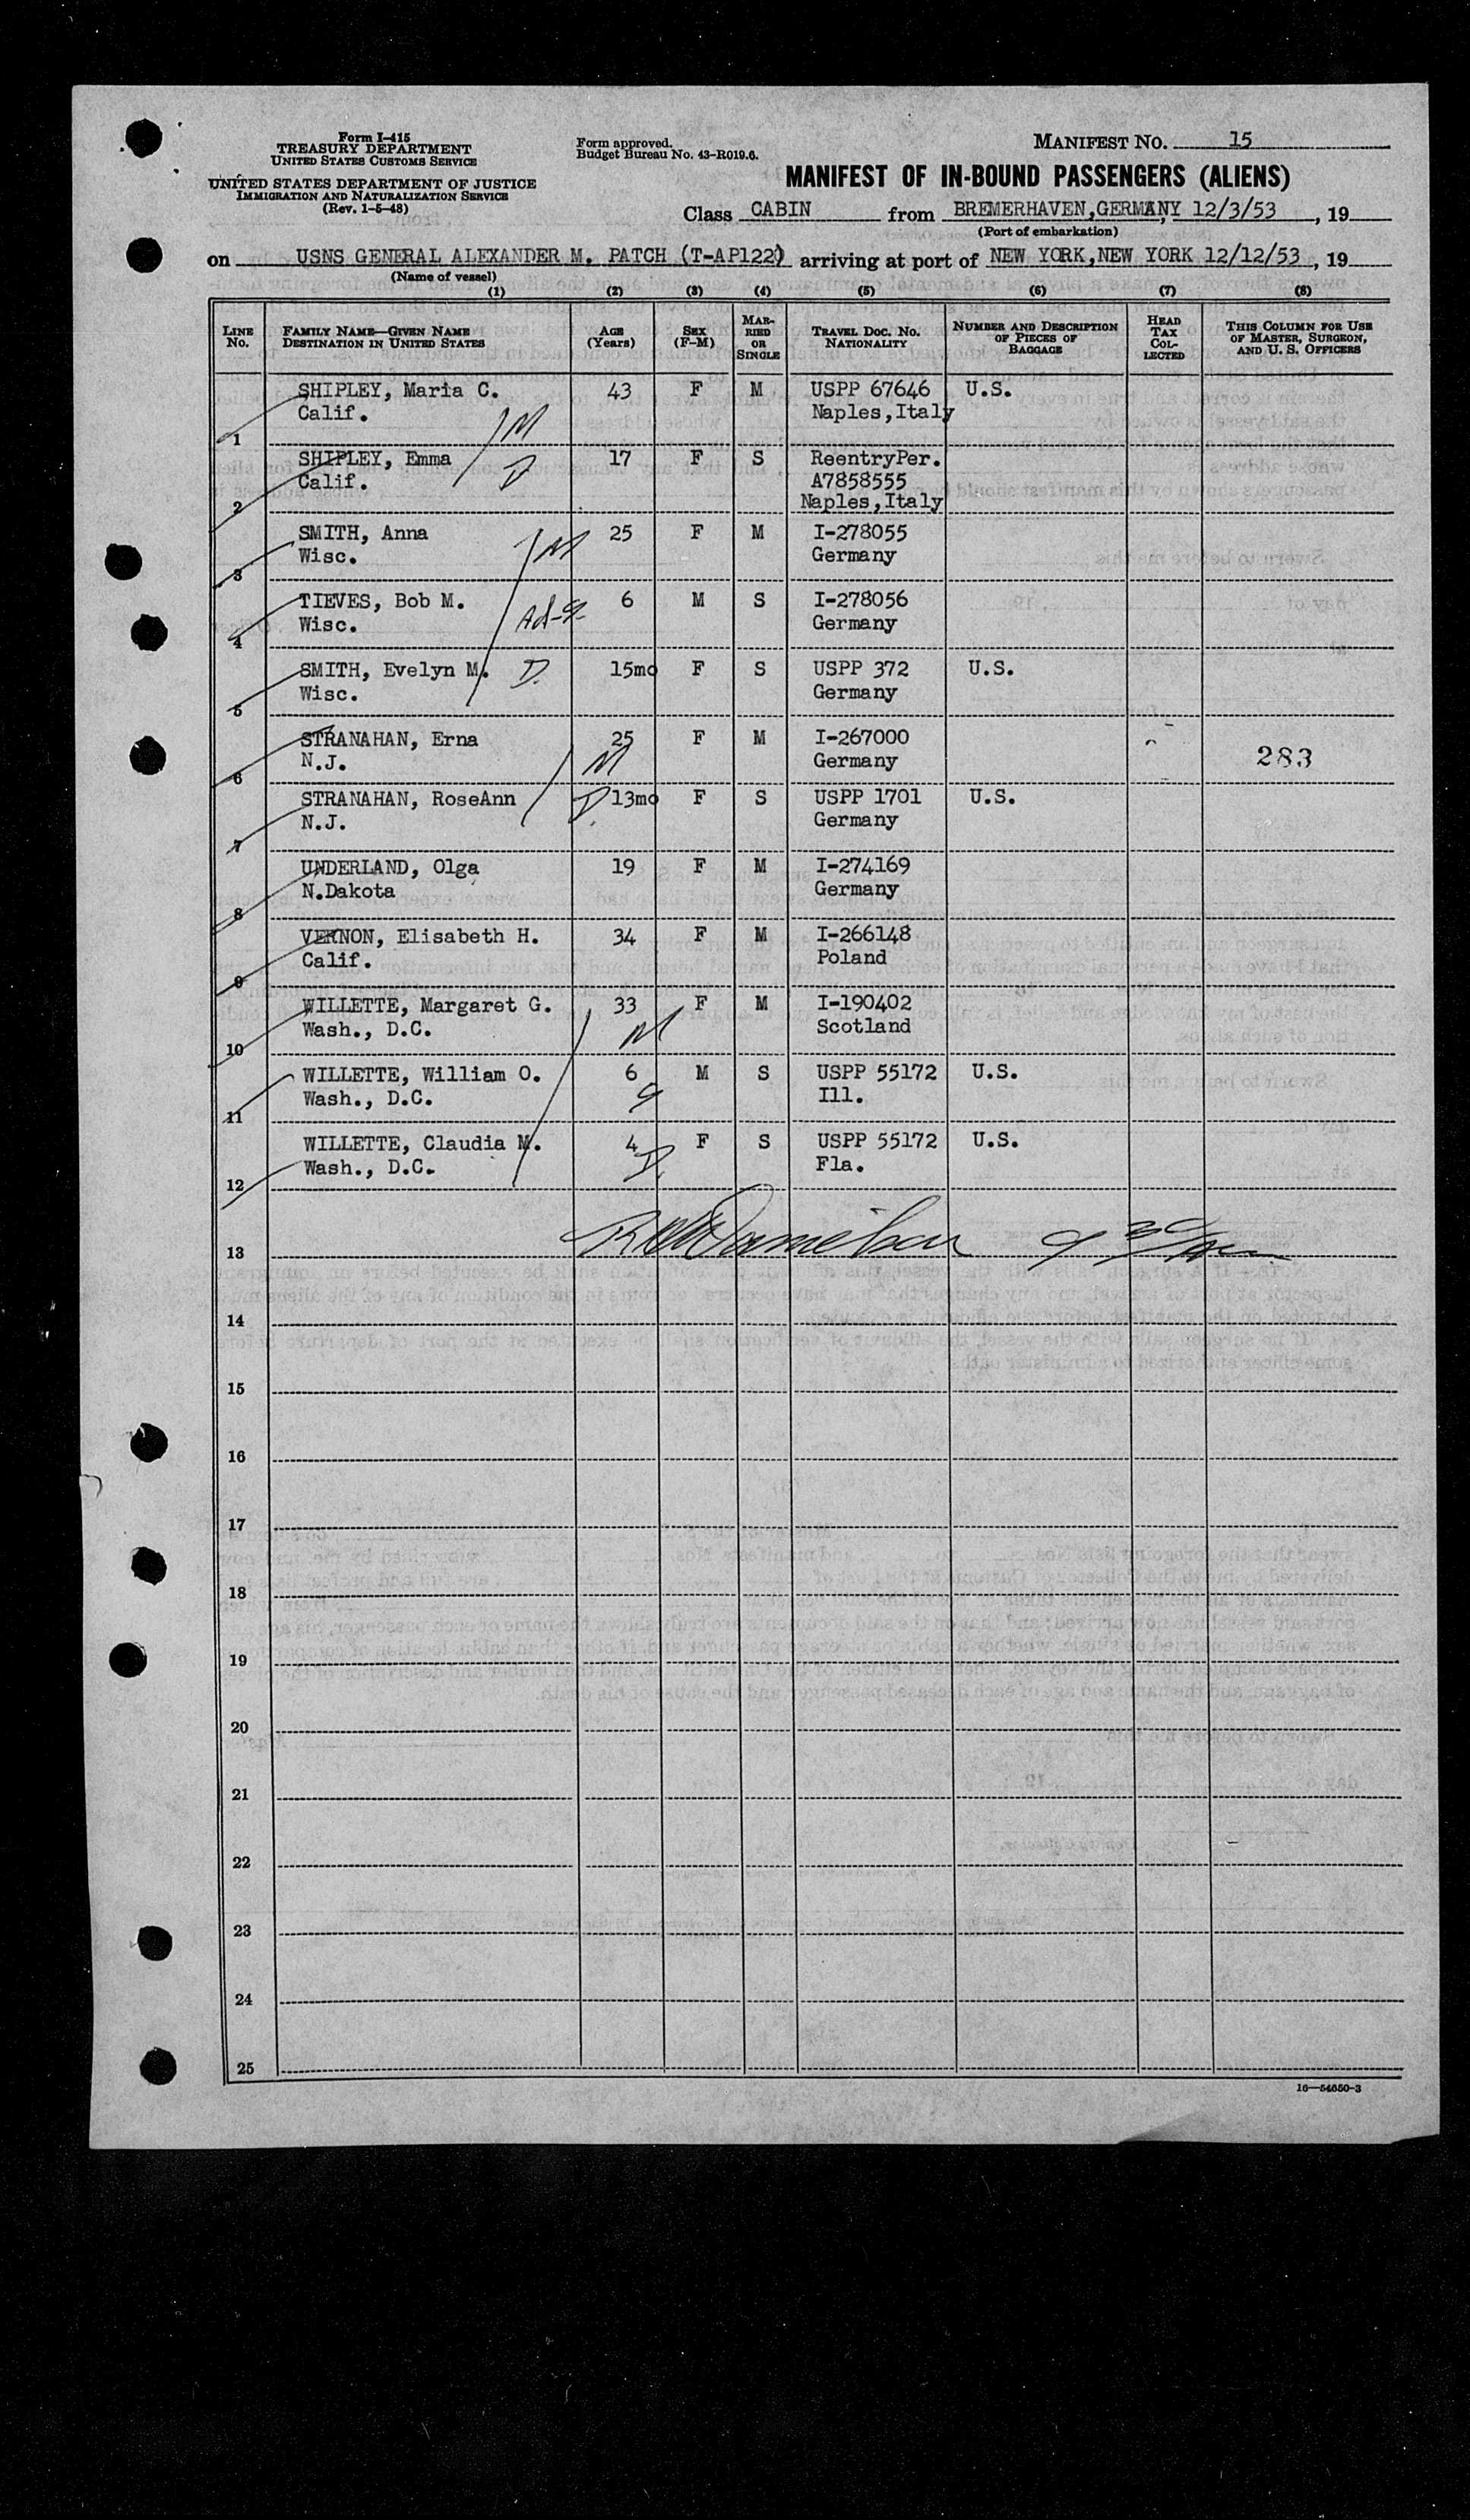 Form I-415
TREASURY DEPARTMENT
UNITED STATES CUSTOMS SERVICE
UNITED STATES DEPARTMENT OF JUSTICE
IMMIGRATION AND NATURALIZATION SERVICE
(Rev. 1-5-48)
Form approved.
Budget Bureau No. 43-R019.6.
MANIFEST NO. 15
MANIFEST OF IN-BOUND PASSENGERS (ALIENS)
Class CABIN from BREMERHAVEN,GERMANY, 12/3/53, 19
(Port of embarkation)
on USNS GENERAL ALEXANDER M. PATCH (T-AP122) arriving at port of NEW YORK,NEW YORK 12/12/53, 19
(Name of vessel)
(1) (2) (3) (4) (5) (6) (7) (8)
LINE No. FAMILY NAME—GIVEN NAME DESTINATION IN UNITED STATES AGE (Years) SEX (F-M) MARRIED OR SINGLE TRAVEL DOC. NO. NATIONALITY NUMBER AND DESCRIPTION OF PIECES OF BAGGAGE HEAD TAX COLLECTED THIS COLUMN FOR USE OF MASTER, SURGEON, AND U. S. OFFICERS
SHIPLEY, Maria C. 43 F M USPP 67646 U.S.
Calif. Naples,Italy
1 M
SHIPLEY, Emma 17 F S ReentryPer.
Calif. D A7858555
2 Naples,Italy
SMITH, Anna 25 F M I-278055
Wisc. M Germany
3
TIEVES, Bob M. 6 M S I-278056
Wisc. Germany
4
SMITH, Evelyn M. D. 15mo F S USPP 372 U.S.
Wisc. Germany
5
STRANAHAN, Erna 25 F M I-267000
N.J. M Germany 283
6
STRANAHAN, RoseAnn D 13mo F S USPP 1701 U.S.
N.J. Germany
7
UNDERLAND, Olga 19 F M I-274169
N.Dakota Germany
8
VERNON, Elisabeth H. 34 F M I-266148
Calif. Poland
9
WILLETTE, Margaret G. 33 F M I-190402
Wash., D.C. M Scotland
10
WILLETTE, William O. 6 M S USPP 55172 U.S.
Wash., D.C. Ill.
11
WILLETTE, Claudia M. 4 F S USPP 55172 U.S.
Wash., D.C. D Fla.
12
13
14
15
16
17
18
19
20
21
22
23
24
25
16—54650-3